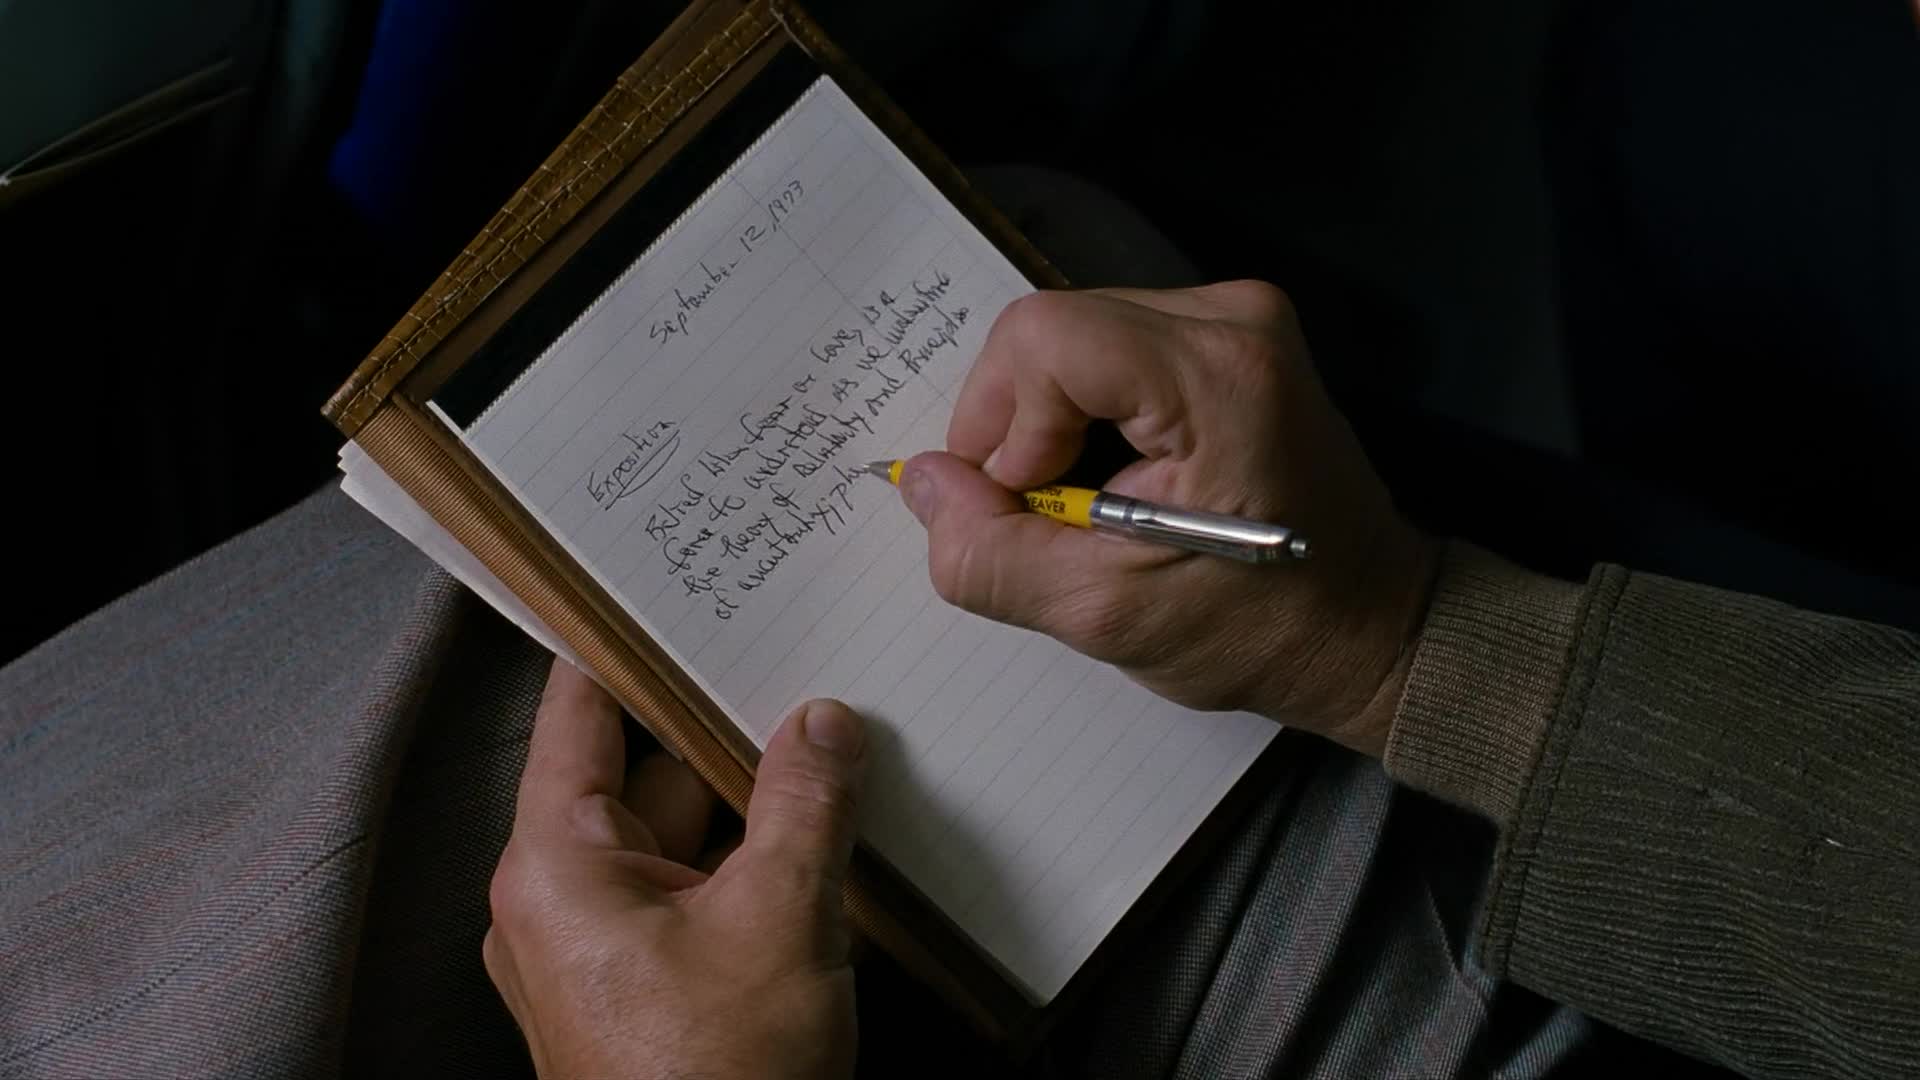 September 12, 1973
Exposition
Belief like fear or love, is a
force to understood as we understand
the theory of Relativity and Principles
of uncertainty, phe
WEAVER